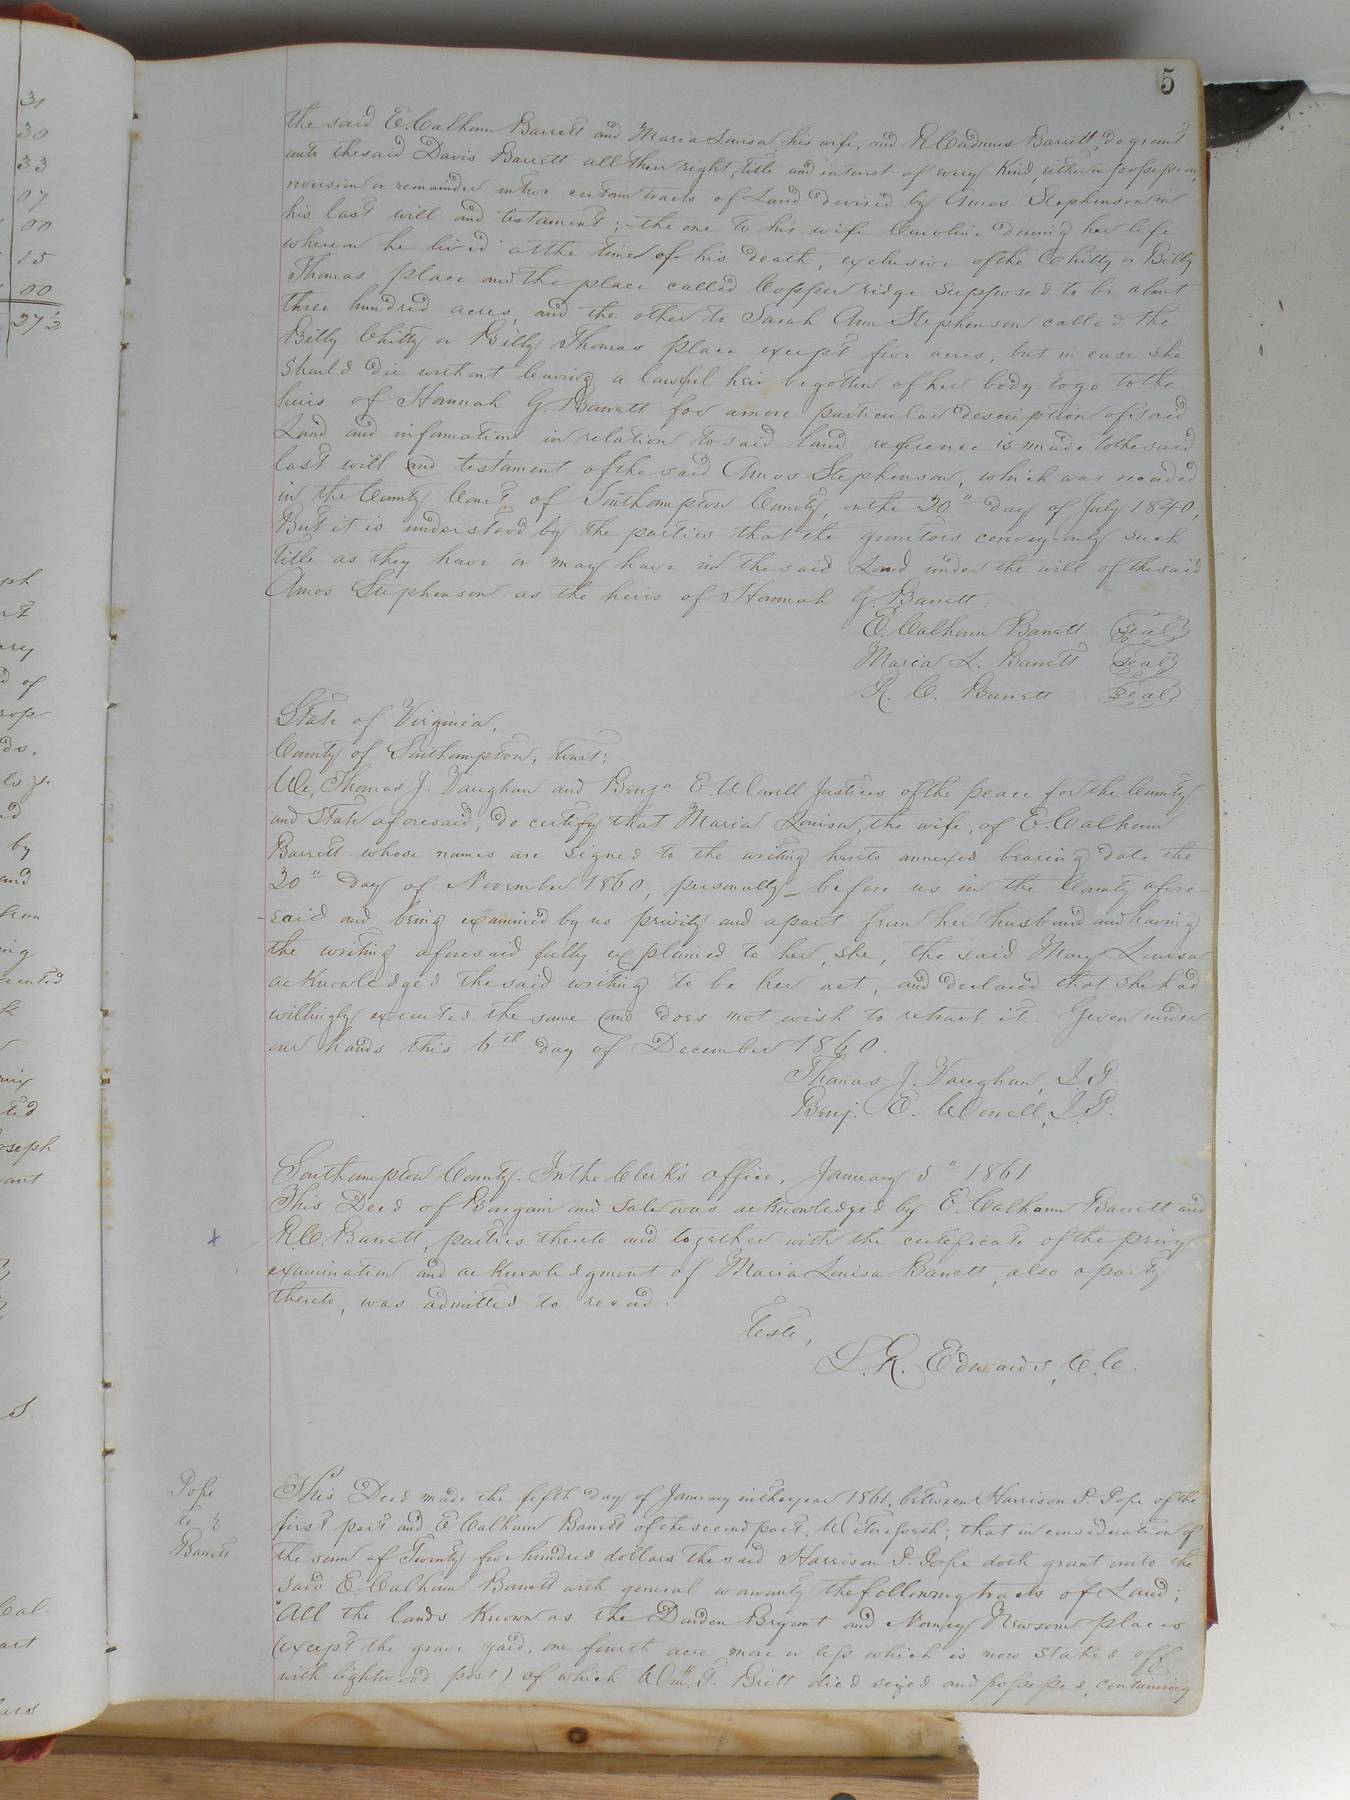 5
31
30
33
07
00
15
00
27 1/2
the said E. Calhoun Barrett and Maria Louisa, his wife, and R. Cadmus Barrett, do grant
unto the said Davis Barrett all their right, title and interest of every kind, either in possession,
reversion or remainder in two certain tracts of Land devised by Amos Stephenson in
his last will and testament; - the one to his wife Caroline during her life
whereon he lived at the time of his death, exclusive of the Chitty or Billy
Thomas place and the place called Copper ridge supposed to be about
three hundred acres, and the other to Sarah Ann Stephenson called the
Billy Chitty or Billy Thomas place except five acres, but in case she
should die without leaving a lawful heir begotten of her body to go to the
heirs of Hannah G. Barrett for a more particular description of said
Land and information in relation to said land reference is made to the said
last will and testament of the said Amos Stephenson, which was recorded
in the County Court of Southampton County, on the 20" day of July 1840,
But it is understood by the parties that the grantors convey only such
title as they have or may have in the said Land under the will of the said
Amos Stephenson as the heirs of Hannah G. Barrett.
E. Calhoun Barrett (seal)
Maria L. Barrett (seal)
R. C. Barrett (seal)
State of Virginia,
County of Southampton, towit;
We, Thomas J. Vaughan and Benja E Worrell Justices of the peace for the County
and State aforesaid, do certify that Maria Louisa, the wife, of E. Calhoun
Barrett whose names are signed to the writing hereto annexed bearing date the
30" day of November 1860, personally before us in the County afore-
-said and being examined by us privily and apart from her husband and having
the writing aforesaid fully explained to her, she, the said Mary Louisa
acknowledged the said writing to be her act, and declared that she had
willingly executed the same and does not wish to retract it. Given under
our hands this 6th day of December 1860.
Thomas J. Vaughan, J.P.
Benj. E. Worrell, J.P.
Southampton County. In the Clerk's office, January 5" 1861
This Deed of Bargain and sale was acknowledged by E. Calhoun Barrett and
R.C. Barrett, parties thereto and together with the certificate of the privy
examination and acknowledgment of Maria Louisa Barrett, also a party
thereto, was admitted to record.
Teste,
L. R. Edwards, C. C.
Pope
to }
Barrett
This Deed made the fifth day of January in the year 1861, between Harrison P. Pope of the
first part and E Calhoun Barrett of the second part, Witnesseth; that in consideration of
the sum of Twenty five hundred dollars the said Harrison P. Pope doth grant unto the
said E Calhoun Barrett with general warranty the following tracts of Land;
"All the lands known as the Darden Bryant and Nanny Newsom places
(except the grave yard, one fourth acre more or less which is now staked off
with lightwood post) of which Wm. T. Britt died seized and possessed, containing